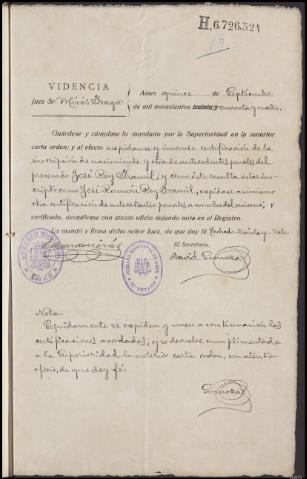 H.6.726.324
VIDENCIA
Juez Sr. Mirás Fraga
Anes quince de Septiembre
de mil novecientos treinta y cuarenta y cuatro.
Guárdese y cúmplase lo mandado por la Superioridad en la anterior
carta orden; y al efecto expídanse y únanse, certificación de la
inscripción de nacimiento y otra de antecedentes penales del
procesado José Rey y como éste resulta estar ins-
cripto como José Ramón Rey expídase asimismo
otra certificación de antecedentes penales a nombre del mismo; y
verificado, devuélvase con atento oficio dejando nota en el Registro.
Lo mandó y firma dicho señor Juez, de que doy fé. Tachado=treinta y=Vale
El Secretario,
David
Nota.
Seguidamente se expiden y unen a continuación las
certificaciones acordadas; y se devuelve cumplimentada
a la Superioridad la anterior carta orden, con atento
oficio, de que doy fé.